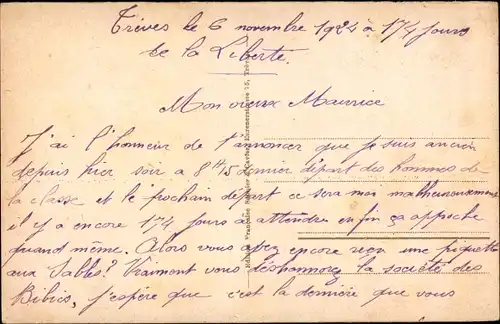 Trèves le 6 novembre 1924 à 174 jours
de la Liberté.
Mon vieux Maurice
J'ai l'honneur de t'annoncer que je suis ancien
depuis hier soir à 8H15 dernier départ des hommes de
la classe et le prochain départ ce sera moi malheureusement
il y a encore 174 jours à attendre enfin ça approche
quand même. Alors vous avez encore reçu une piquette
aux Sables? Vraiment vous deshonnorez la société des
Bibis, j'espère que c'est la dernière que vous